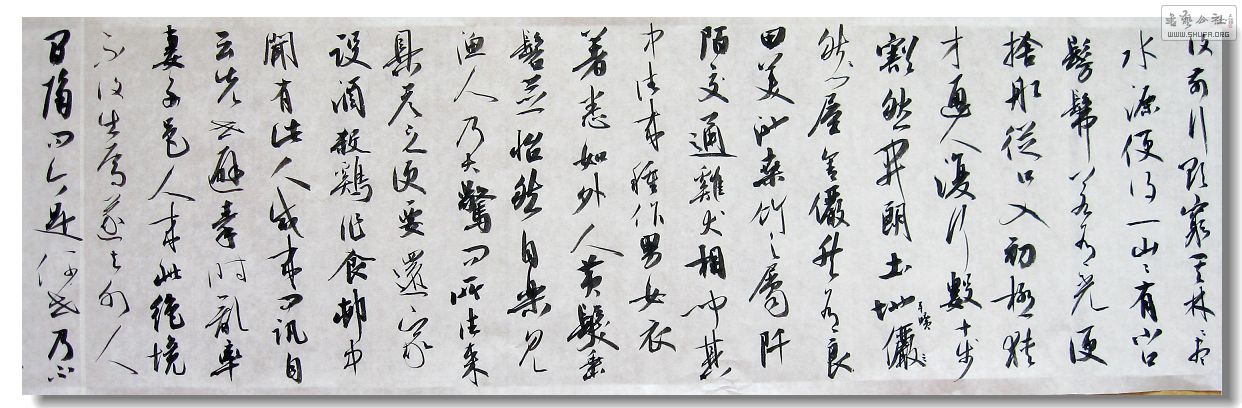 書藝公社
WWW.SHUFA.ORG
復前行欲窮其林〻尽
水源便得一山〻有小口
髣髴若有光便
捨船從口入初極狹
才通人復行數十步
豁然開朗土地平曠儼〻
然屋舍儼然有良
田美池桑竹之屬阡
陌交通雞犬相聞其
中往來種作男女衣
著悉如外人黃髮垂
髫並怡然自樂見
漁人乃大驚問所從来
具答之便要還家
設酒殺鷄作食村中
聞有此人咸來問訊自
云先世避秦時亂率
妻子邑人來此絕境
不復出焉遂与外人
間隔問今是何世乃不